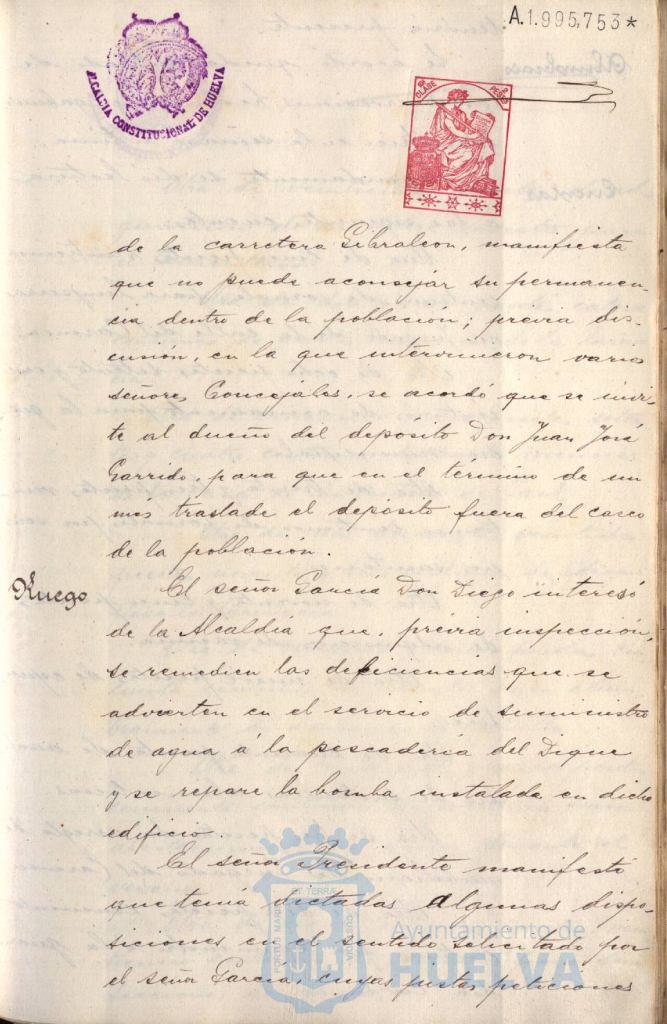 A.1.995,753*
ALCALDIA CONSTITUCIONAL DE HUELVA
CLASE PESETA
de la carretera Gibraleon, manifiesta
que no puede aconsejar su permanen-
cia dentro de la población; previa dis-
cusión, en la que intervinieron varios
señores Concejales, se acordó que se invi-
te al dueño del depósito Don Juan José
Garrido, para que en el término de un
mes traslade el depósito fuera del casco
de la población.
Ruego
El señor García Don Diego interesó
de la Alcaldía que, previa inspección,
se remedien las deficiencias que se
advierten en el servicio de suministro
de agua á la pescadería del Dique
y se repare la bomba instalada en dicho
edificio.
El señor Presidente manifestó
que tenía dictadas algunas dispo-
siciones en el sentido solicitado por
el señor García, cuyas justas peticiones
Ayuntamiento de
HUELVA